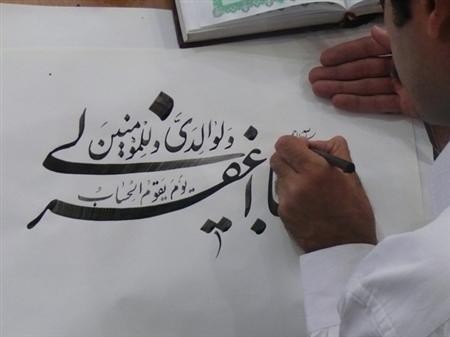 اغفر لی
ولوالدیّ وللمؤمنین
یوم یقوم الحساب